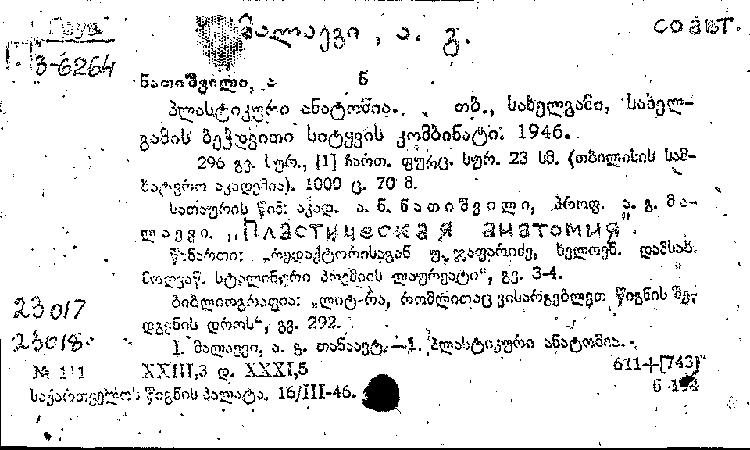 მალაევი, ა. გ.
3-6264
ნათიშვილი, ა ნ
პლასტიკური ანატომია. თბ., სახელგამი, სახელ-
გამის ბეჭდვითი სიტყვის კომბინატი. 1946.
296 გვ. სურ., [1] ჩართ. ფურც. სურ. 23 სმ. (თბილისის სამ-
ხატვრო აკადემია). 1000 ც. 70 მ.
სათაურის წინ: აკად. ა. ნ. ნათიშვილი, პროფ. ა. გ. მა-
ლაევი. „Пластическая анатомия“.
წინართი: „რედაქტორისაგან უ. ჯაფარიძე, ხელოვნ. დამსახ.
მოღვაწ. სტალინური პრემიის ლაურეატი“, გვ. 3-4.
ბიბლიოგრაფია: „ლიტ-რა, რომლითაც ვისარგებლეთ წიგნის შე-
დგენის დროს“, გვ. 292.
1. მალაევი, ა. გ. თანაავტ.—1. პლასტიკური ანატომია.
23017
23018
№ 111 XXIII,3 დ. XXXI,5 611+[743]
საქართველოს წიგნის პალატა. 16/III-46.